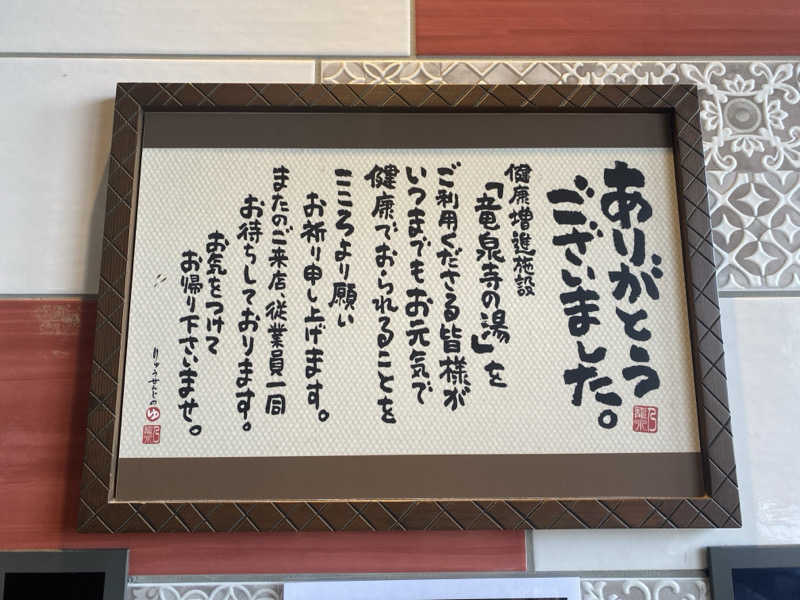 ありがとう
ございました。
健康増進施設
「竜泉寺の湯」を
ご利用くださる皆様が
いつまでもお元気で
健康でおられることを
こころより願い
お祈り申し上げます。
またのご来店、従業員一同
お待ちしております。
お気をつけて
お帰り下さいませ。
りゅうせんじのゆ